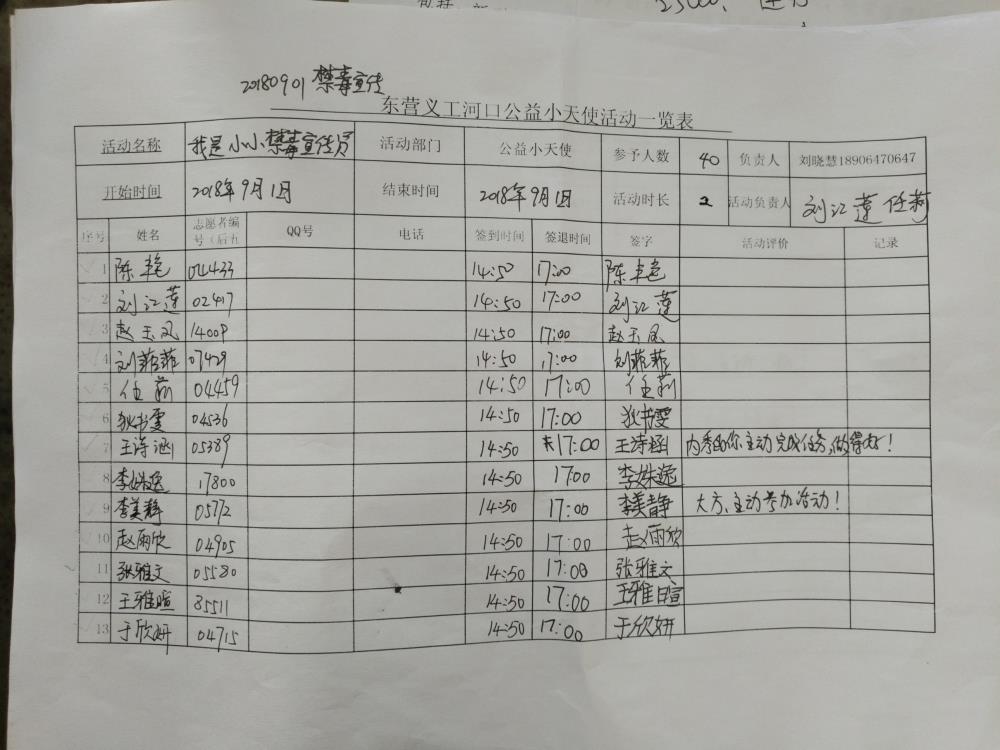 20180901 禁毒宣传
东营义工河口公益小天使活动一览表
活动名称 我是小小禁毒宣传员 活动部门 公益小天使 参予人数 40 负责人 刘晓慧18906470647
开始时间 2018年9月1日 结束时间 2018年9月1日 活动时长 2 活动负责人 刘江莲 任莉
序号 姓名 志愿者编号(后五 QQ号 电话 签到时间 签退时间 签字 活动评价 记录
1 陈艳 04433 14:50 17:00 陈艳
2 刘江莲 02417 14:50 17:00 刘江莲
3 赵玉凤 14009 14:50 17:00 赵玉凤
4 刘菲菲 07429 14:50 17:00 刘菲菲
5 任莉 04459 14:50 17:00 任莉
6 狄书雯 04536 14:50 17:00 狄书雯
7 王诗涵 05389 14:50 17:00 王诗涵 内秀的你主动完成任务,做得好!
8 李姝逸 17800 14:50 17:00 李姝逸
9 李美静 05772 14:50 17:00 李美静 大方、主动参加活动!
10 赵雨欣 04905 14:50 17:00 赵雨欣
11 张雅文 05580 14:50 17:00 张雅文
12 王雅暄 85511 14:50 17:00 王雅暄
13 于欣妍 04715 14:50 17:00 于欣妍